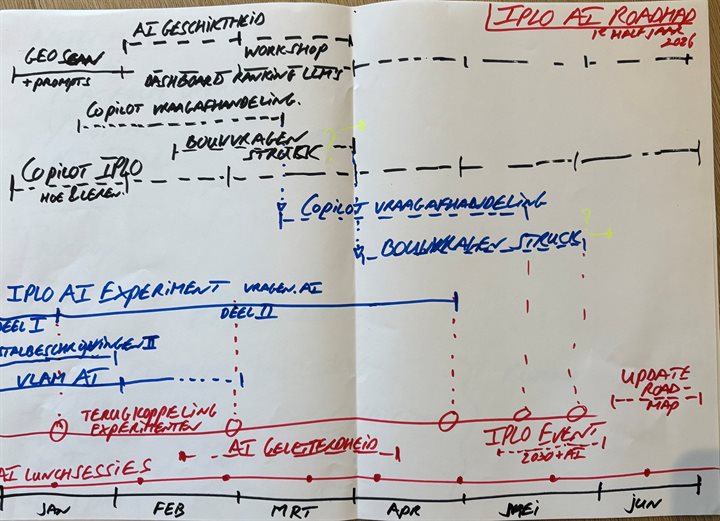 IPLO AI ROADMAP
1E HALFJAAR
2026
AI GESCHIKTHEID
GEO SCAN
+ PROMPTS
WORKSHOP
DASHBOARD RANKING LLM'S
COPILOT VRAAGAFHANDELING.
BOUWVRAGEN
STRUIK
?
COPILOT IPLO
HOE & LEREN.
COPILOT VRAAGAFHANDELING
?
BOUWVRAGEN STRUIK
IPLO AI EXPERIMENT VRAGEN.AI
DEEL I
DEEL II
VLAM AI
UPDATE
ROAD-
MAP
TERUGKOPPELING
EXPERIMENTEN
IPLO EVENT
2030 + AI
AI GELETTERDHEID
AI LUNCHSESSIES
JAN FEB MRT APR MEI JUN